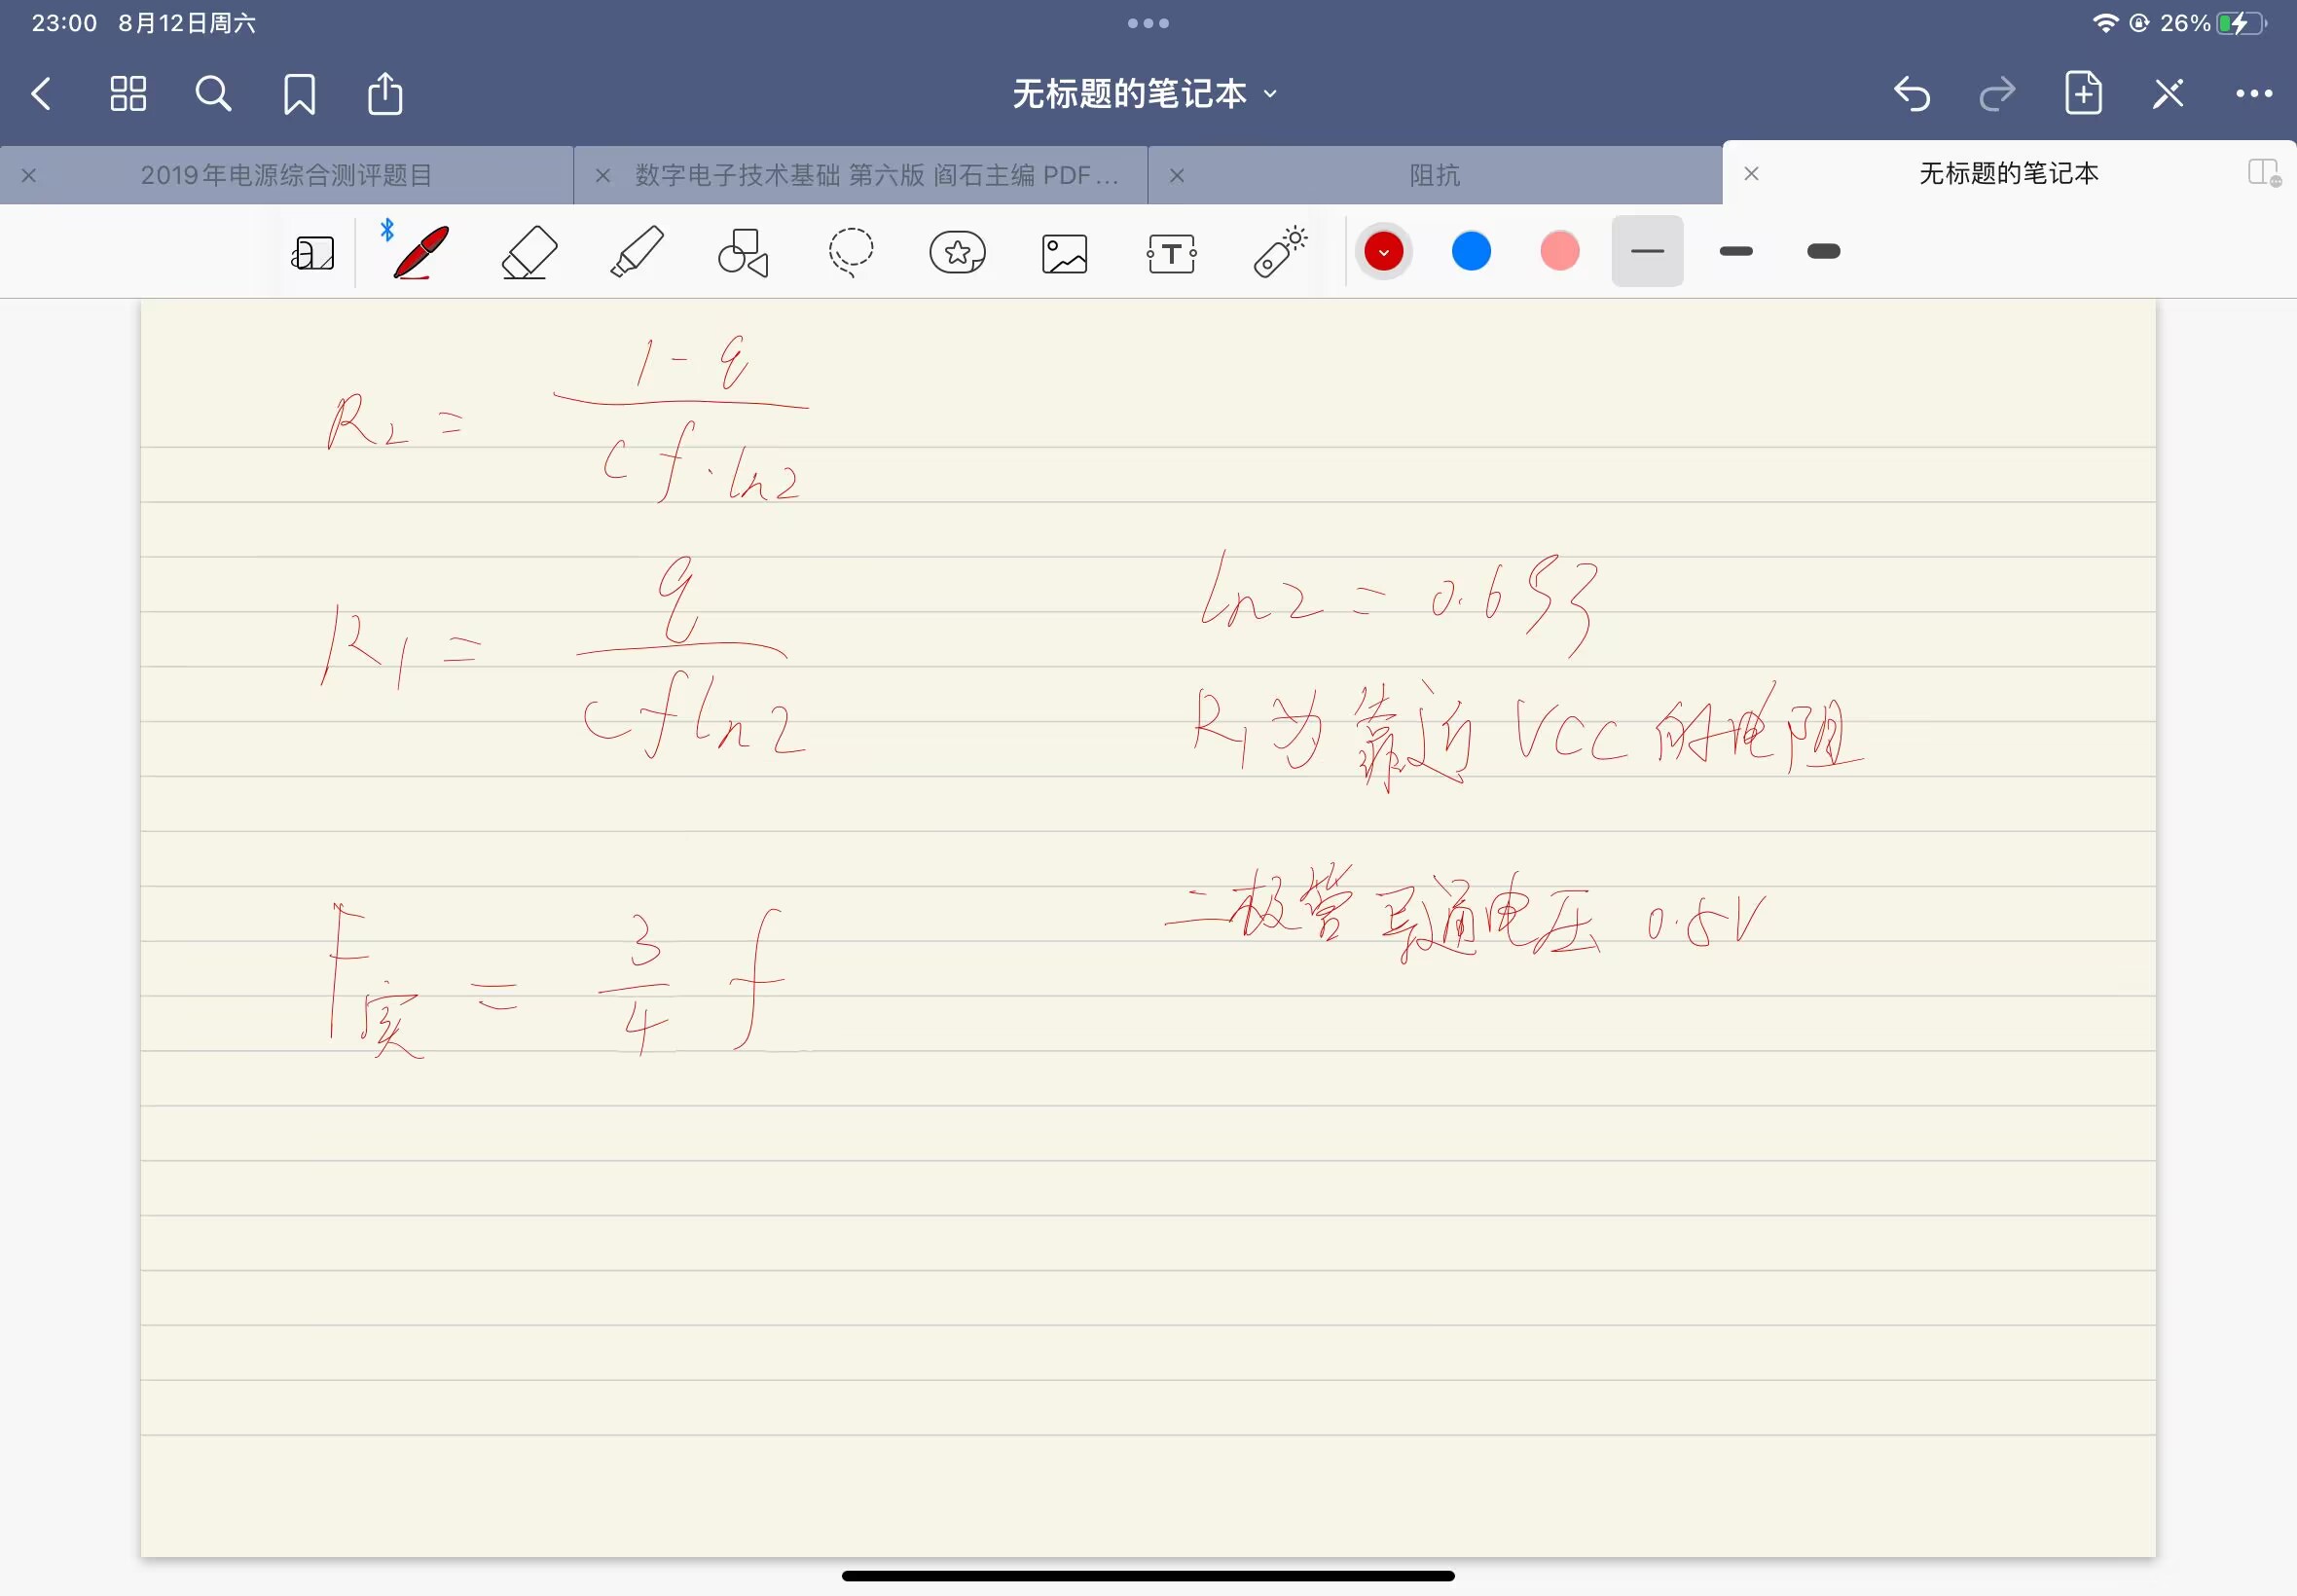 23:00 8月12日周六
26%
无标题的笔记本
2019年电源综合测评题目
数字电子技术基础 第六版 阎石主编 PDF...
阻抗
无标题的笔记本
R₂ = (1-q)/(cf·ln2)
R₁ = q/(cfln2)
ln2 = 0.653
R₁为靠近VCC的电阻
二极管导通电压 0.5V
F实 = 3/4 f